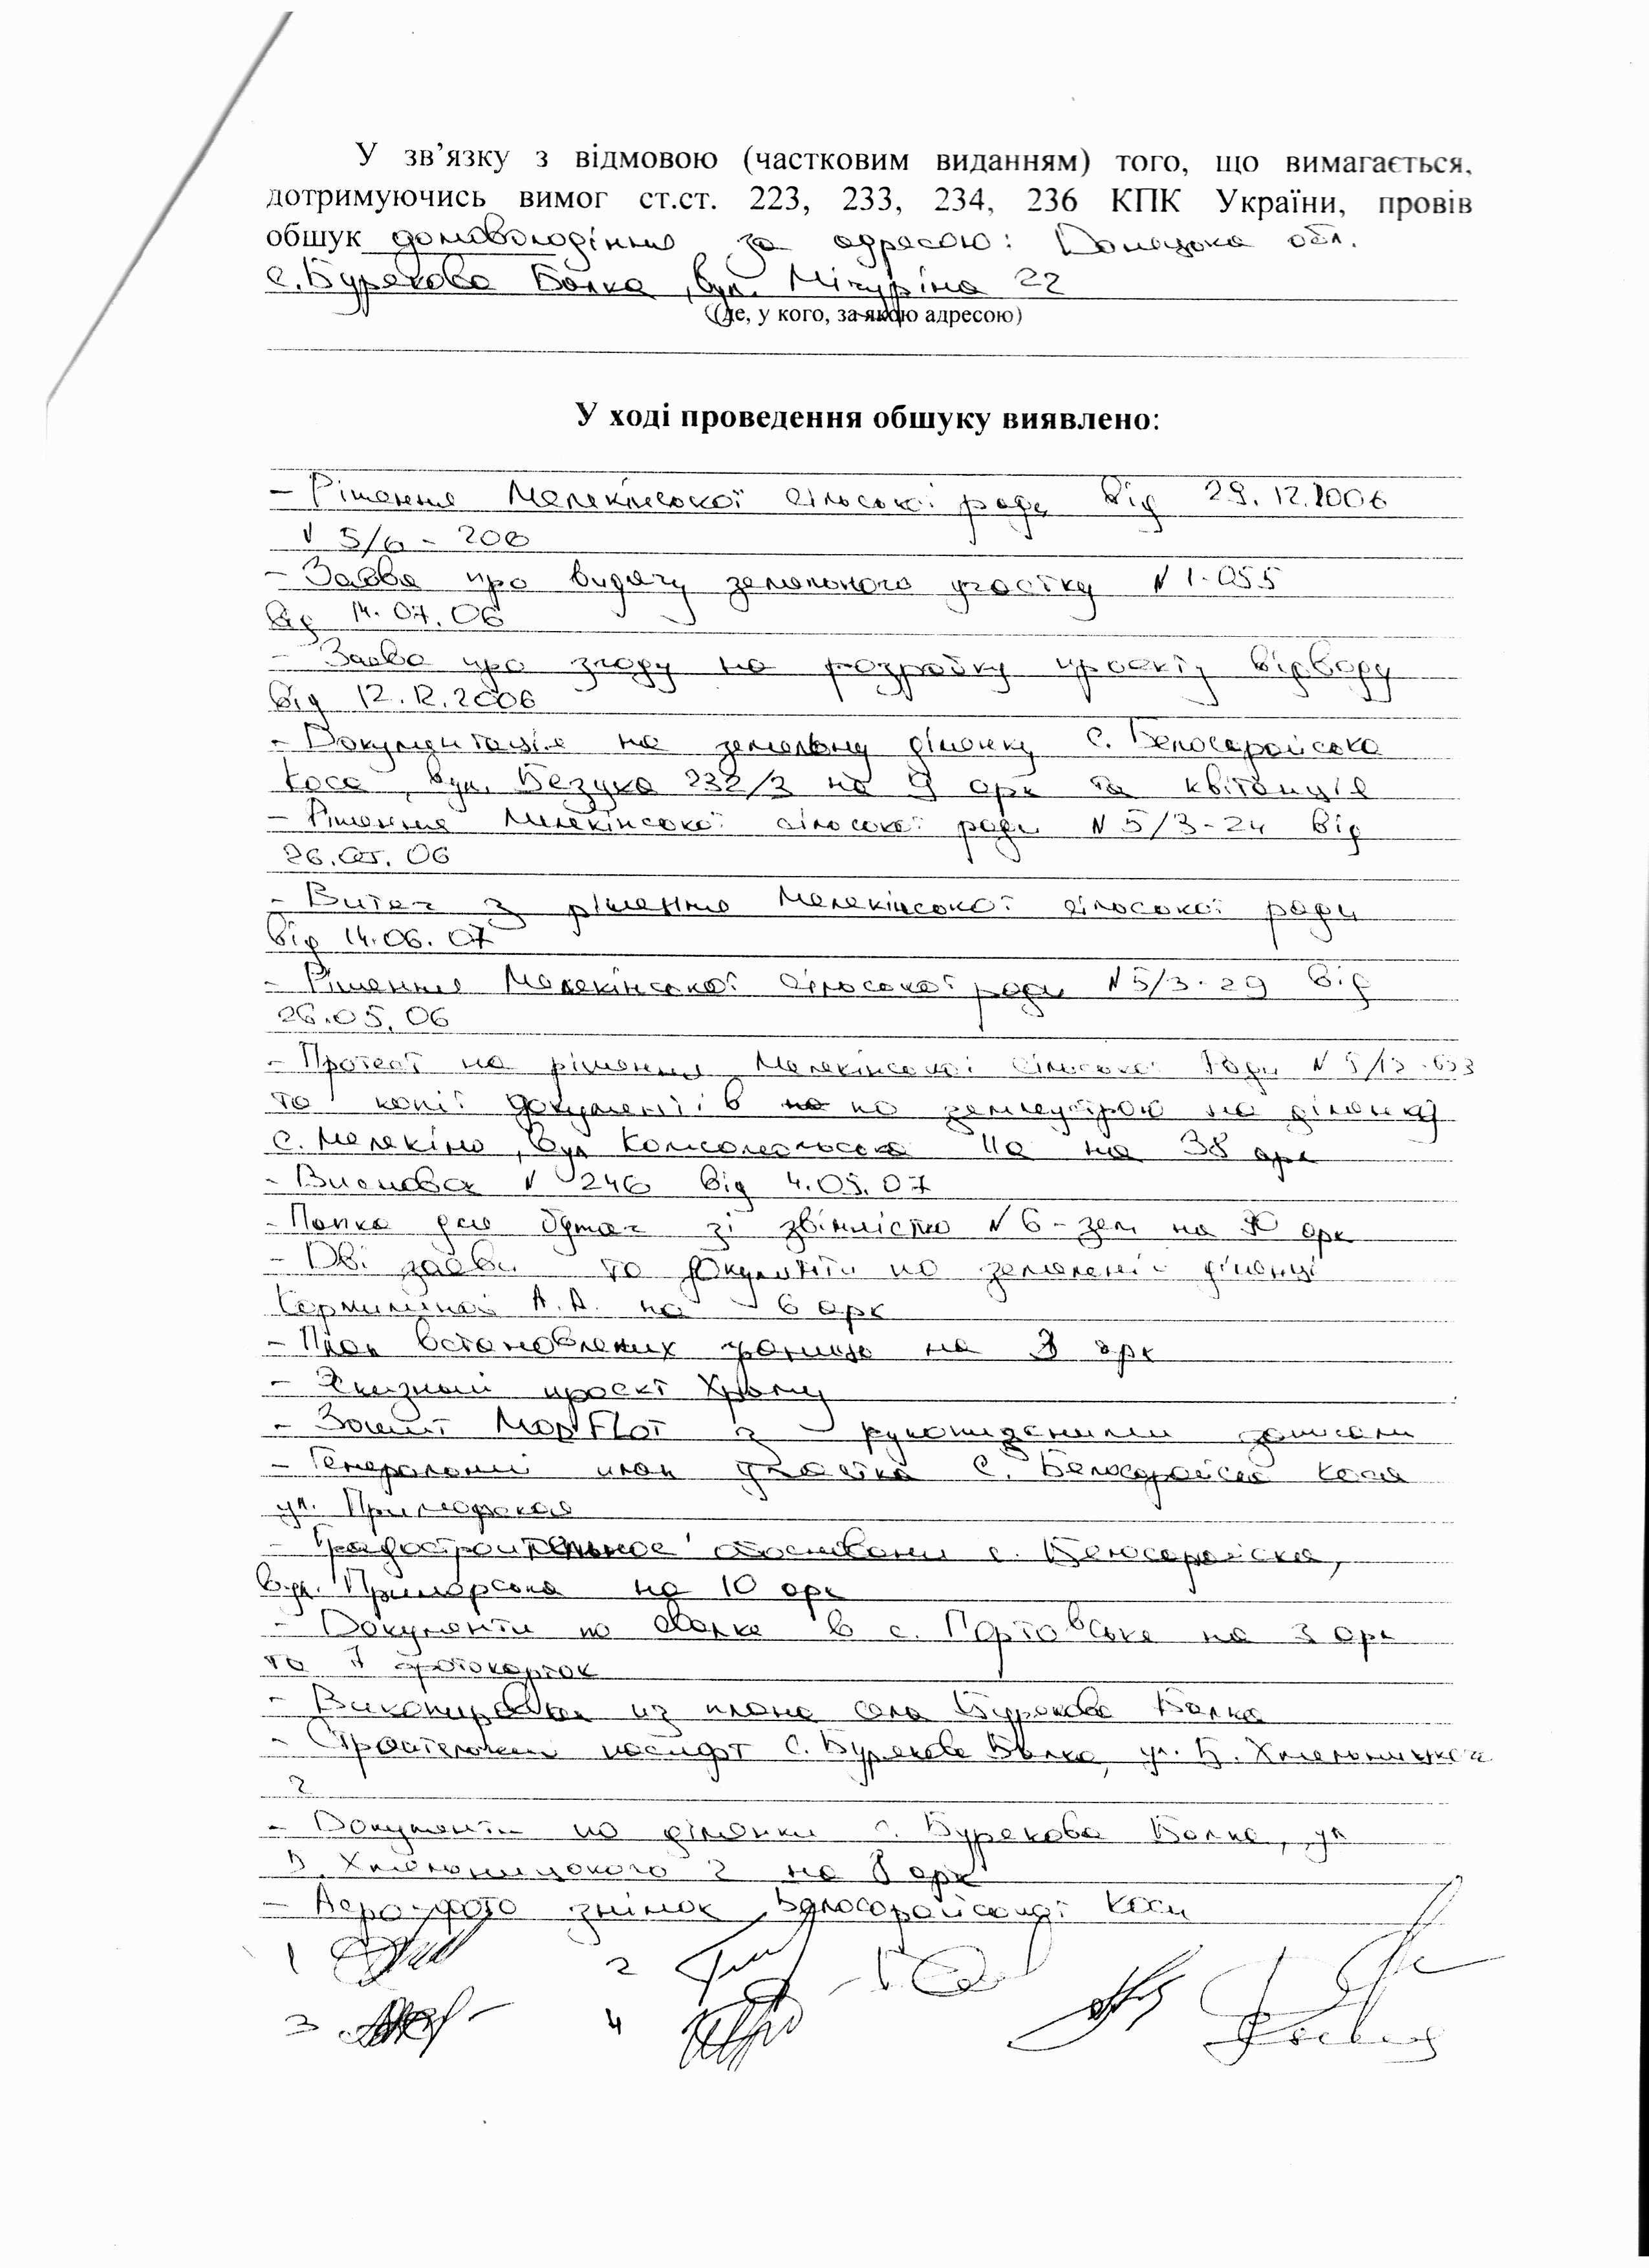 У зв’язку з відмовою (частковим виданням) того, що вимагається,
дотримуючись вимог ст.ст. 223, 233, 234, 236 КПК України, провів
обшук домоволодіння за адресою: Донецька обл.
с. Бурякова Балка, вул. Мічуріна 22
(де, у кого, за якою адресою)
У ході проведення обшуку виявлено:
- Рішення Мелекінської сільської ради від 29.12.2006
№ 5/6 - 206
- Заява про видачу земельного участку № 1-055
від 14.07.06
- Заява про згоду на розробку проекту відводу
від 12.12.2006
- Документація на земельну ділянку с. Белосарайська
коса, вул. 232/3 на 9 арк та квітанція
- Рішення Мелекінської сільської ради № 5/3-24 від
26.05.06
- Витяг з рішення Мелекінської сільської ради
від 14.06.07
- Рішення Мелекінської сільської ради № 5/3-29 від
26.05.06
- Протест на рішення Мелекінської сільської ради №
та копії документів по землеустрою на ділянку
с. Мелекіно, вул Комсомольська 11а на 38 арк
- Висновок № 246 від 4.05.07
- Папка для бумаг зі звітністю № 6-зем на арк
- Дві заяви та документи по земельній ділянці
А.А. на 6 арк
- План встановлених границь на 3 арк
- Эскизный проект Храму
- Зошит МорFLoT з рукописними записами
- Генеральний план участка с. Белосарайска коса
ул. Приморская
- Градостроительное обоснования с. Белосарайска,
вул. Приморська на 10 арк
- Документи по свалке в с. Портовське на 3 арк
та 7 фотокарток
- Викопировка из плана села Бурякова Балка
- Строительний паспорт с. Бурякова Балка, ул. Б. Хмельницкого
2
- Документи по ділянки с. Бурякова Балка, ул
Б. Хмельницького 2 на 8 арк
- Аеро-фото знімок Белосарайської коси
1 2
3 4